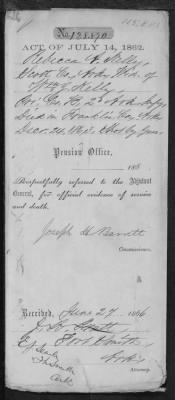 No. 128,870
ACT OF JULY 14, 1862.
Rebecca A. Kelly,
Scott Co., Ark. Wid. of
Wm G. Kelly,
Pri. Co. H, 2d Ark Inf,
Died in Franklin Co, Ark
Dec. 24,
Pension Office,
186
Respectfully referred to the Adjutant
General, for official evidence of service
and death.
Joseph H Barrett
Commissioner.
Received, June 27, 1866
Smith
Fort Smith
Ark
Attorney.